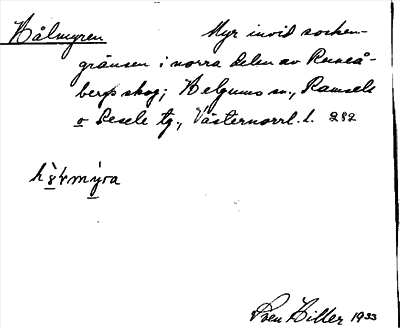 Hålmyren Myr invid socken-
gränsen i norra delen av Ruseå-
bergs skog; Helgums sn., Ramsele
o Resele tg., Västernorrl. l. 282
Sven Hiller 1933